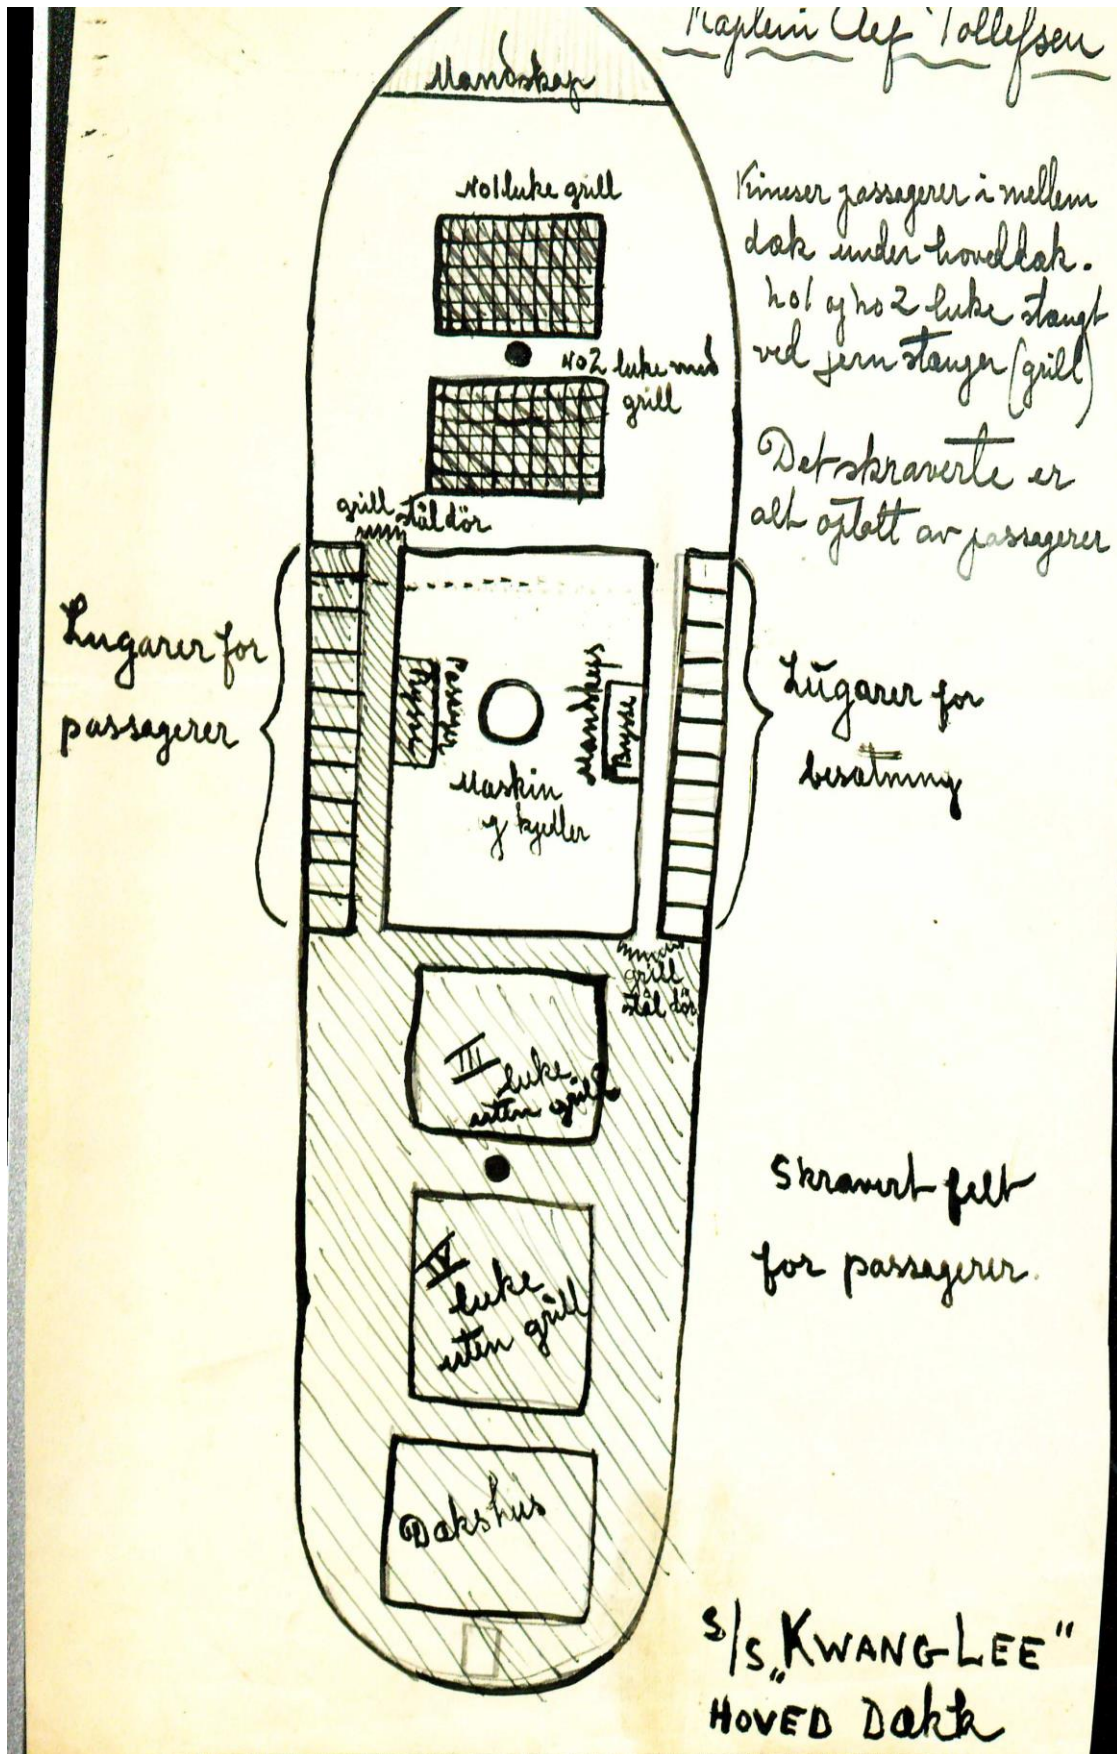 Kaptein Leif Tollefsen
Mandskap
No1 luke grill
Kineser passagerer i mellem
dæk under hoveddæk.
No1 og No2 luke stængt
ved jern stænger (grill)
No2 luke med
grill
Det skraverte er
alt optatt av passagerer
grill
ståldör
Lugarer for
passagerer
Passager
Bysse
Mandskaps
Bysse
Maskin
og kjeller
Lugarer for
besætning
grill
stål dör
III
luke
uten grill
Skravert felt
for passagerer.
IV
luke
uten grill
Dækshus
s/s „KWANG-LEE"
HOVED Dækk